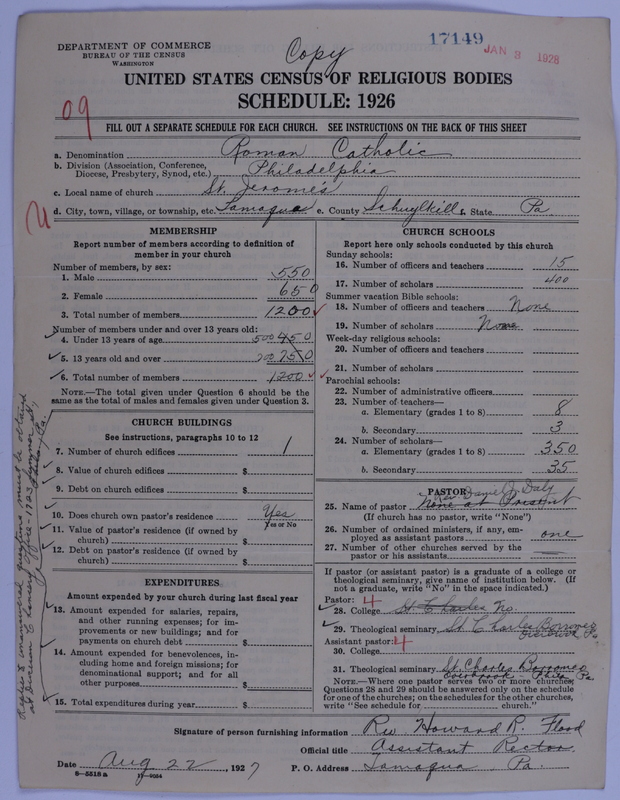 17149
JAN 3 1928
Copy
DEPARTMENT OF COMMERCE
BUREAU OF THE CENSUS
WASHINGTON
UNITED STATES CENSUS OF RELIGIOUS BODIES
SCHEDULE: 1926
09
FILL OUT A SEPARATE SCHEDULE FOR EACH CHURCH. SEE INSTRUCTIONS ON THE BACK OF THIS SHEET
a. Denomination Roman Catholic
b. Division (Association, Conference, Diocese, Presbytery, Synod, etc.) Philadelphia
c. Local name of church St. Jerome's
d. City, town, village, or township, etc. Tamaqua e. County Schuylkill f. State Pa.
MEMBERSHIP
Report number of members according to definition of
member in your church
Number of members, by sex:
1. Male 550
2. Female 650
3. Total number of members 1200
Number of members under and over 13 years old:
4. Under 13 years of age 500 450
5. 13 years old and over 700 750
6. Total number of members 1200
NOTE.—The total given under Question 6 should be the
same as the total of males and females given under Question 3.
CHURCH BUILDINGS
See instructions, paragraphs 10 to 12
7. Number of church edifices 1
8. Value of church edifices $
9. Debt on church edifices $
10. Does church own pastor's residence Yes
Yes or No
11. Value of pastor's residence (if owned by
church) $
12. Debt on pastor's residence (if owned by
church) $
EXPENDITURES
Amount expended by your church during last fiscal year
13. Amount expended for salaries, repairs,
and other running expenses; for im-
provements or new buildings; and for
payments on church debt $
14. Amount expended for benevolences, in-
cluding home and foreign missions; for
denominational support; and for all
other purposes $
15. Total expenditures during year $
CHURCH SCHOOLS
Report here only schools conducted by this church
Sunday schools:
16. Number of officers and teachers 15
17. Number of scholars 400
Summer vacation Bible schools:
18. Number of officers and teachers None
19. Number of scholars None
Week-day religious schools:
20. Number of officers and teachers
21. Number of scholars
Parochial schools:
22. Number of administrative officers
23. Number of teachers—
a. Elementary (grades 1 to 8) 8
b. Secondary 3
24. Number of scholars—
a. Elementary (grades 1 to 8) 350
b. Secondary 35
PASTOR
Rev. Daniel J. Daly
25. Name of pastor None at Present
(If church has no pastor, write "None")
26. Number of ordained ministers, if any, em-
ployed as assistant pastors one
27. Number of other churches served by the
pastor or his assistants —
If pastor (or assistant pastor) is a graduate of a college or
theological seminary, give name of institution below. (If
not a graduate, write "No" in the space indicated.)
Pastor: 4
28. College St. Charles No.
29. Theological seminary St. Charles Borromeo
Overbrook Pa
Assistant pastor: 4
30. College
31. Theological seminary St. Charles Borromeo
Overbrook - Phila Pa.
NOTE.—Where one pastor serves two or more churches,
Questions 28 and 29 should be answered only on the schedule
for one of the churches; on the schedules for the other churches,
write "See schedule for church."
Signature of person furnishing information Rev Howard R. Flood
Official title Assistant Rector
Date Aug 22, 1927 P. O. Address Tamaqua Pa.
6—5518a